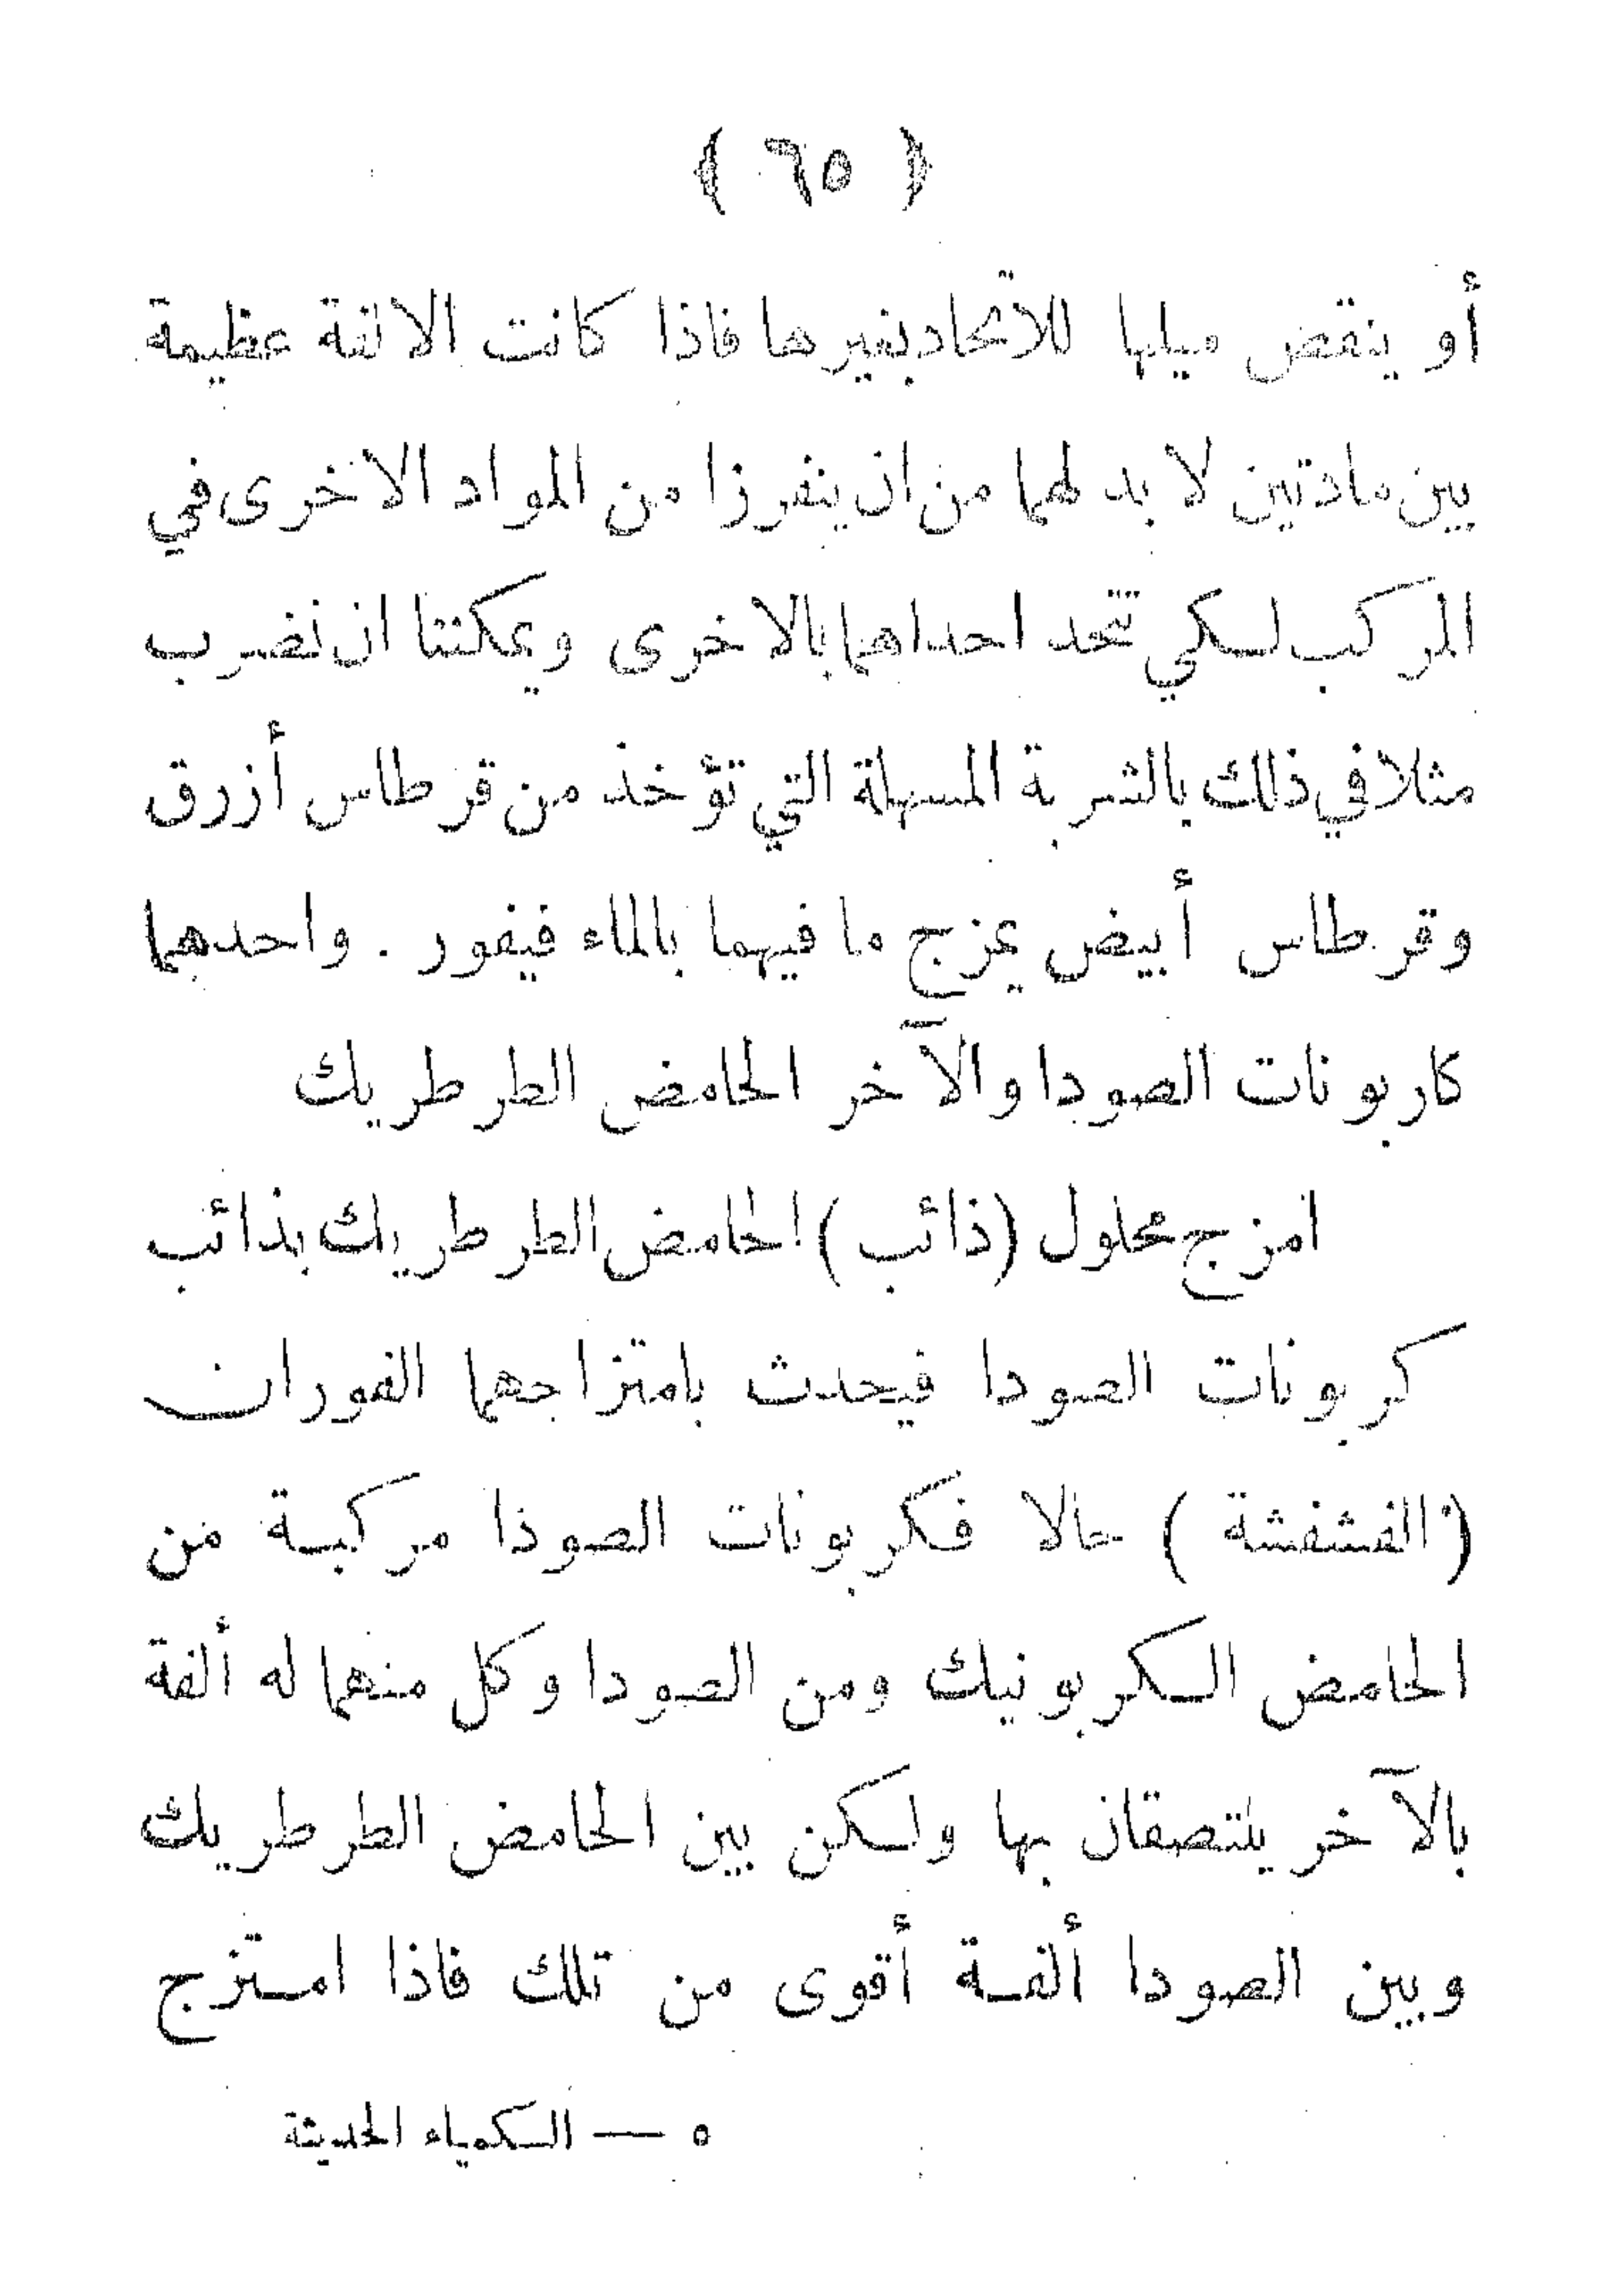 ( ٦٥ )
أو ينقص ميلها للاتحاد بغيرها فاذا كانت الالفة عظيمة
بين مادتين لا بد لهما من ان ينفرزا من المواد الاخرى في
المركب لكي تتحد احداهما بالاخرى ويمكننا ان نضرب
مثلا في ذلك بالشربة المسهلة التي تؤخذ من قرطاس أزرق
وقرطاس أبيض يمزج ما فيهما بالماء فيفور . واحدهما
كاربونات الصودا والآخر الحامض الطرطريك
امزج محلول (ذائب) الحامض الطرطريك بذائب
كربونات الصودا فيحدث بامتزاجهما الفوران
(الفشفشة) حالا فكربونات الصودا مركبة من
الحامض الكربونيك ومن الصودا وكل منهما له ألفة
بالآخر يلتصقان بها ولكن بين الحامض الطرطريك
وبين الصودا ألفة أقوى من تلك فاذا امتزج
٥ — الكمياء الحديثة